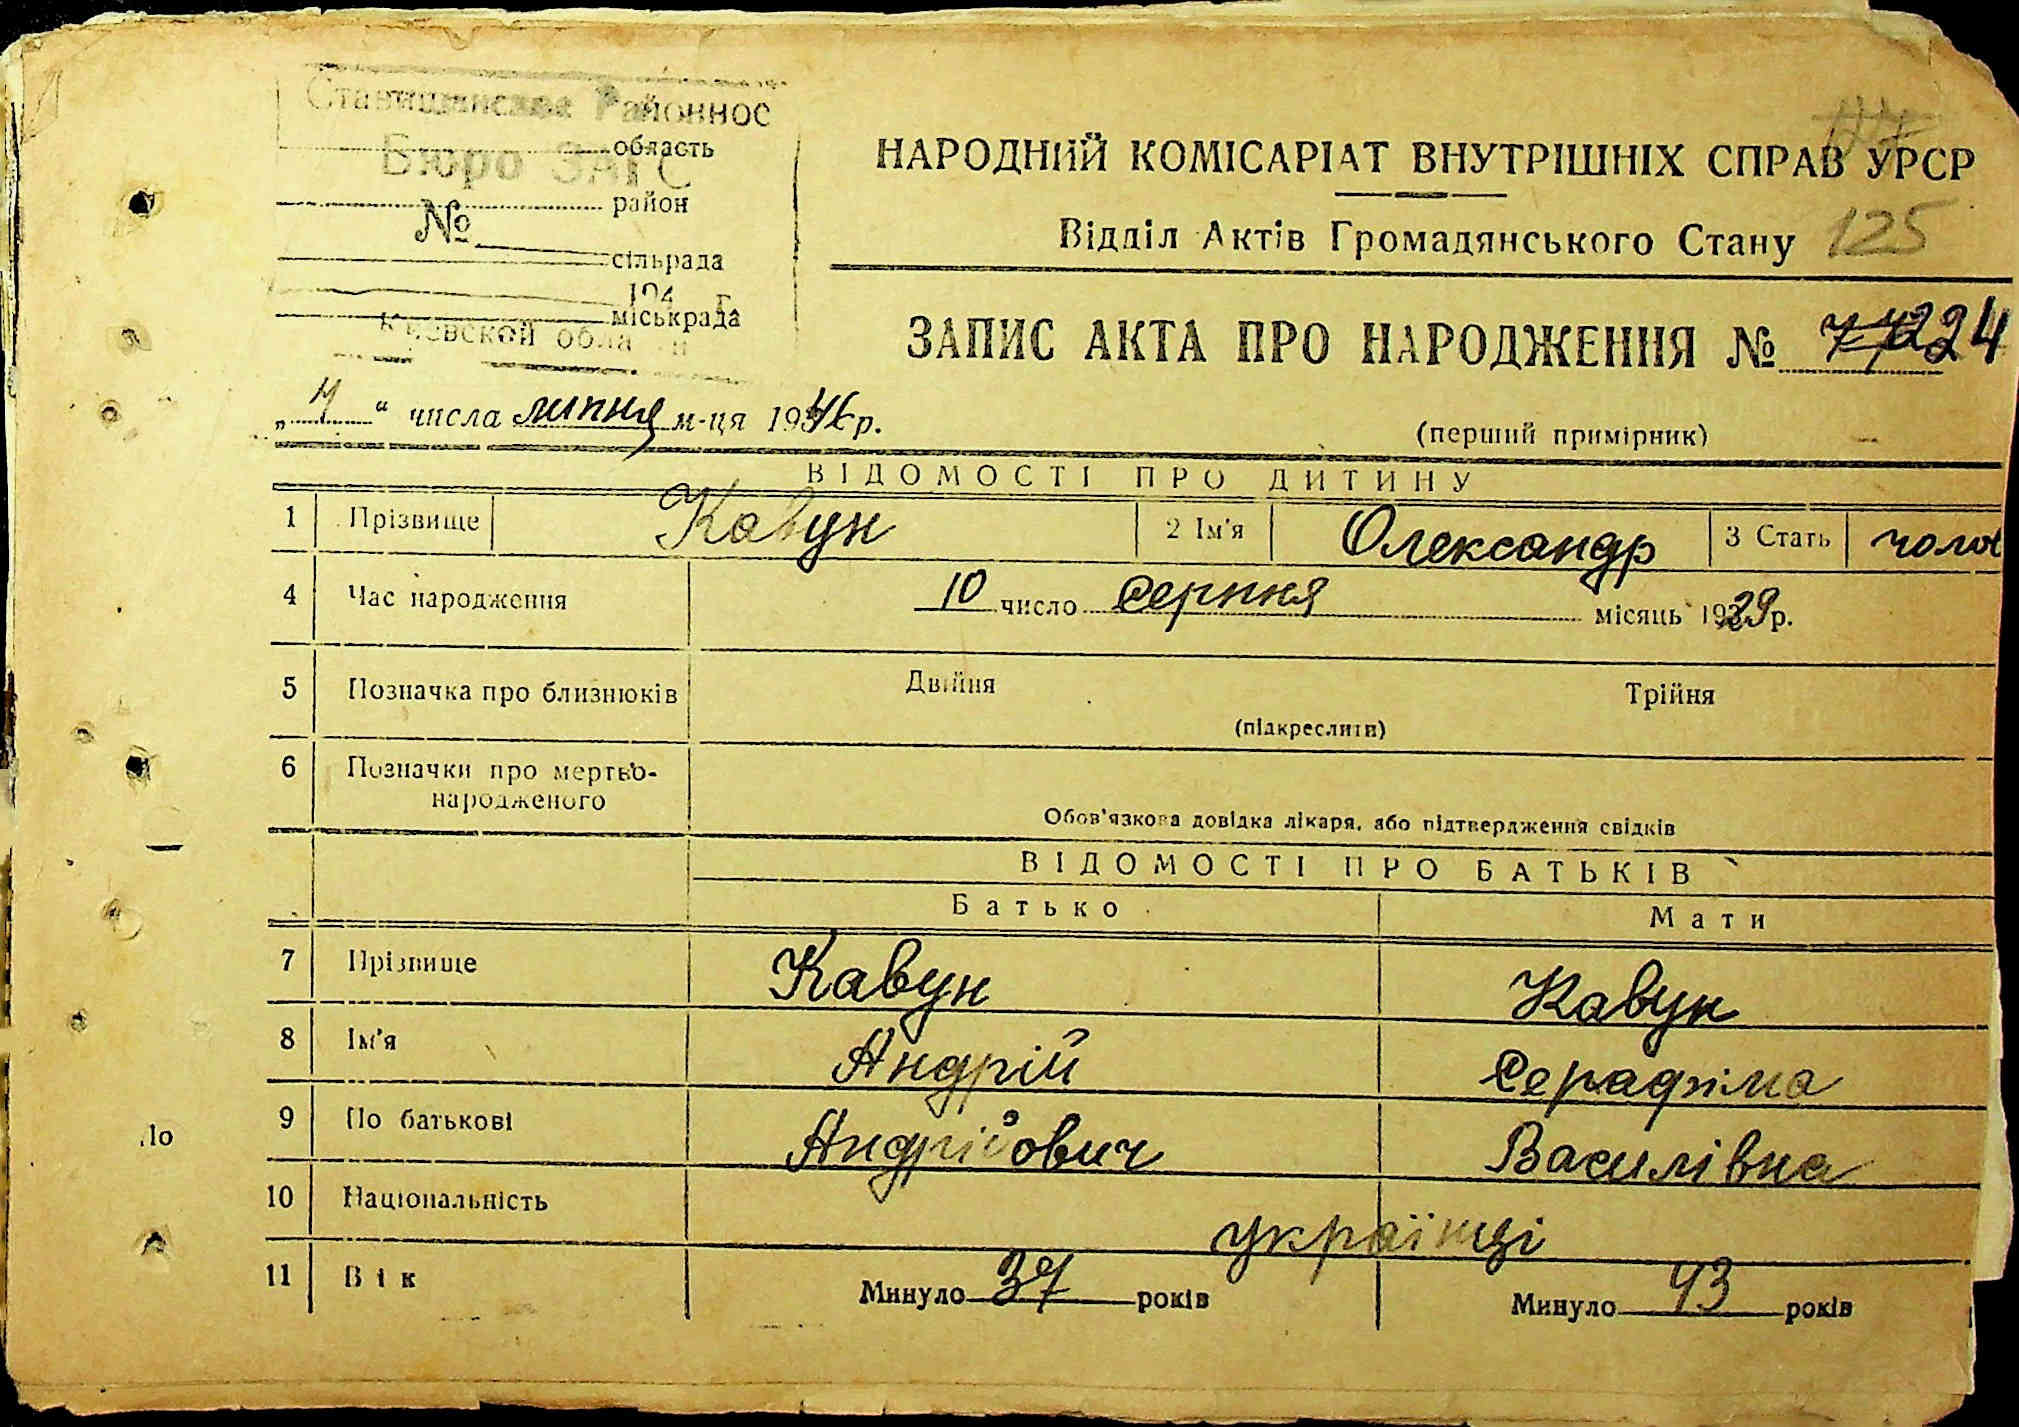 Ставищанское Районное
Бюро ЗАГС
область
район
№
сільрада
194 г.
міськрада
Киевской области
НАРОДНИЙ КОМІСАРІАТ ВНУТРІШНІХ СПРАВ УРСР
Відділ Актів Громадянського Стану 125
ЗАПИС АКТА ПРО НАРОДЖЕННЯ № 224
" числа липня м-ця 194 р.
(перший примірник)
ВІДОМОСТІ ПРО ДИТИНУ
1 Прізвище Кавун 2 Ім'я Олександр 3 Стать чолов
4 Час народження 10 число серпня місяць 1929 р.
5 Позначка про близнюків Двійня Трійня
(підкреслити)
6 Позначки про мертво-
народженого
Обов'язкова довідка лікаря, або підтвердження свідків
ВІДОМОСТІ ПРО БАТЬКІВ
Батько Мати
7 Прізвище Кавун Кавун
8 Ім'я Андрій Серафіма
9 По батькові Андрійович Василівна
10 Національність українці
11 Вік Минуло 37 років Минуло 43 років